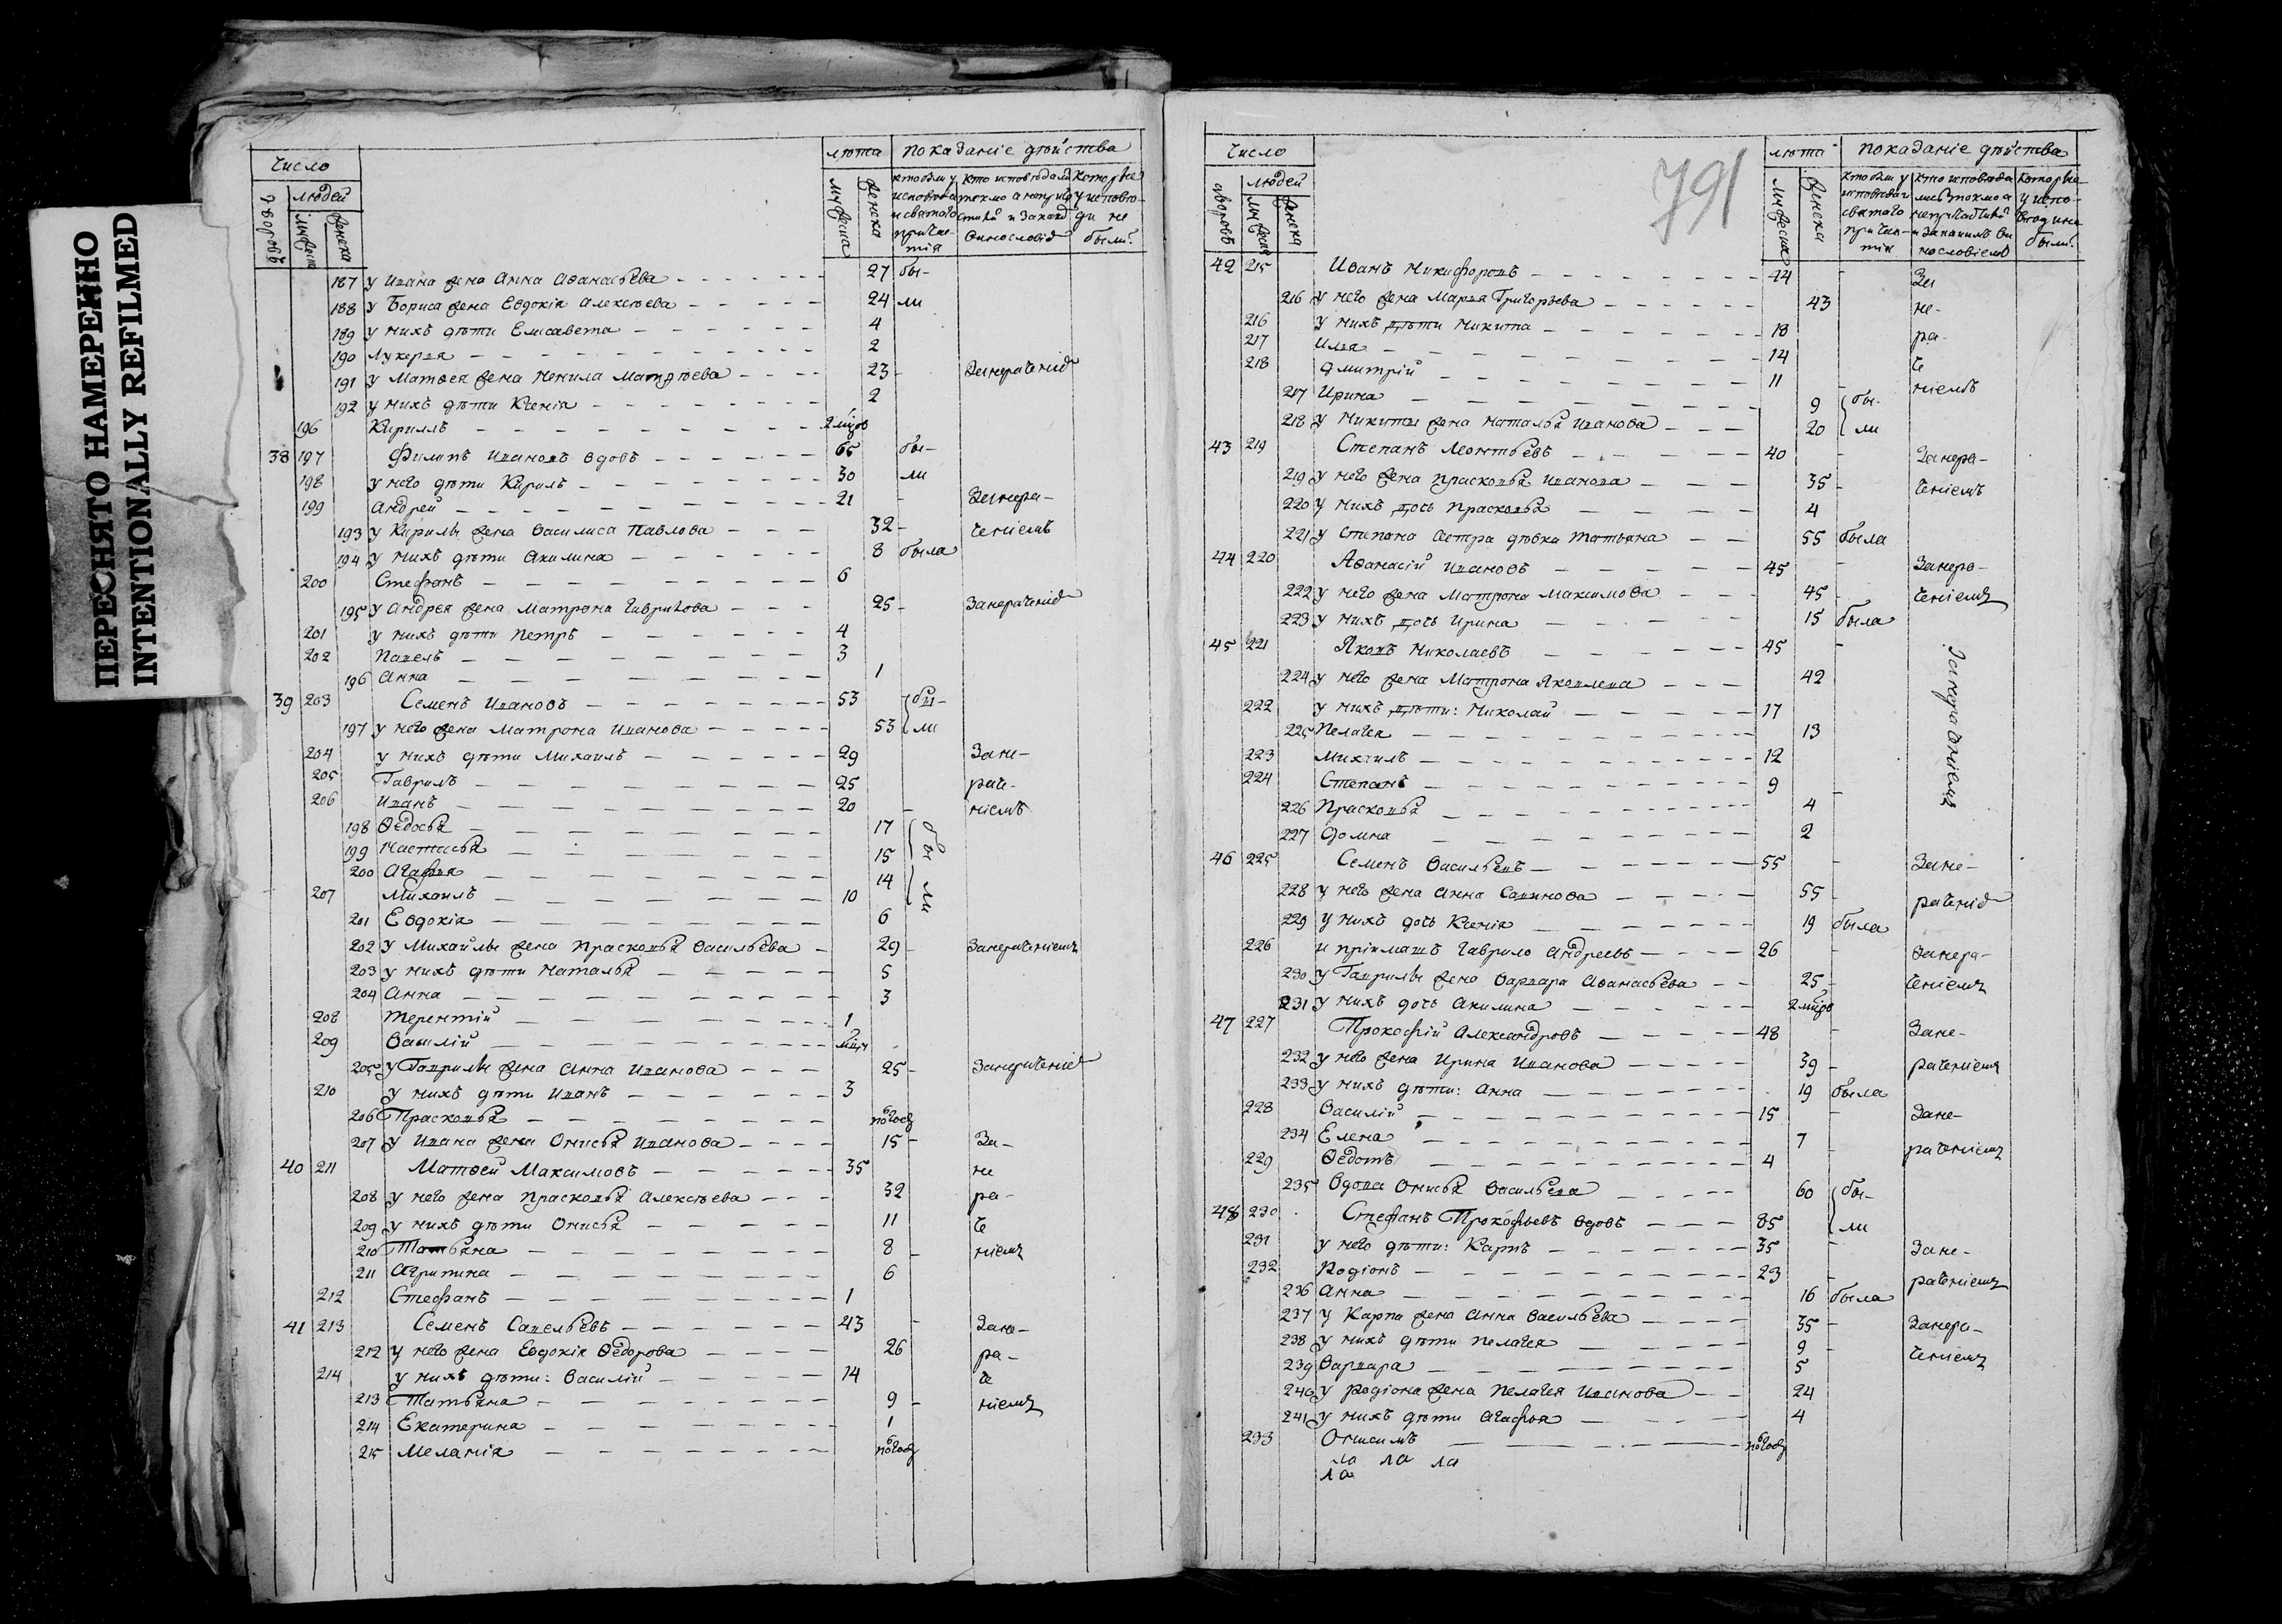 ПЕРЕСНЯТО НАМЕРЕННО
INTENTIONALLY REFILMED
Число лѣта показаніе дѣйства
дворовъ людей мужеска женска мужеска женска
187 у Ивана жена Анна Аѳанасьева 27 бы-
188 у Бориса жена Евдокія Алексѣева 24 ли
189 у нихъ дѣти Елисавета 4
190 Лукерья 2
191 у Матвея жена Ненила Матвѣева 23 Занераченіе
192 у нихъ дѣти Ксенія 2
196 Кириллъ
38 197 Филипъ Ивановъ вдовъ 65 бы-
198 у него дѣти Кирилъ 30 ли
199 Андрей 21 Занера-
193 у Кирилы жена Василиса Павлова 32 ченіемъ
194 у нихъ дѣти Акилина 8 была
200 Стефанъ 6
195 у Андрея жена Матрона Гаврилова 25 Занераченіе
201 у нихъ дѣти Петръ 4
202 Павелъ 3
196 Анна 1
39 203 Семенъ Ивановъ 53 бы-
197 у него жена Матрона Иванова 53 ли
204 у нихъ дѣти Михаилъ 29 Зане-
205 Гаврилъ 25 раче-
206 Иванъ 20 ніемъ
198 Ѳедосья 17 бы
199 Настасья 15
200 Агафья 14 ли
207 Михаилъ 10
201 Евдокія 6
202 У Михайлы жена Прасковья Васильева 29 Занераченіемъ
203 у нихъ дѣти Наталья 5
204 Анна 3
208 Терентій 1
209 Василій
205 У Гаврилы жена Анна Иванова 25 Занераченіе
210 у нихъ дѣти Иванъ 3
206 Прасковья
207 У Ивана жена Онисья Иванова 15 За-
40 211 Матвей Максимовъ 35 не
208 у него жена Прасковья Алексѣева 32 ра-
209 у нихъ дѣти Онисья 11 че
210 Татьяна 8 ніемъ
211 Агрипина 6
212 Стефанъ 1
41 213 Семенъ Савельевъ 43 Зане-
212 у него жена Евдокія Ѳедорова 26 ра-
214 у нихъ дѣти: Василій 14 че
213 Татьяна 9 ніемъ
214 Екатерина 1
215 Меланія
791
Число лѣта показаніе дѣйства
дворовъ людей мужеска женска мужеска женска
42 215 Иванъ Никифоровъ 44 За
216 у него жена Марья Григорьева 43 не-
216 у нихъ дѣти Никита 18 ра-
217 Илья 14 че
218 Дмитрій 11 ніемъ
217 Ирина 9 бы-
218 у Никиты жена Наталья Иванова 20 ли
43 219 Степанъ Леонтьевъ 40 Занера-
219 у него жена Прасковья Иванова 35 ченіемъ
220 у нихъ дочь Прасковья 4
221 у Степана сестра дѣвка Татьяна 55 была
44 220 Аѳанасій Ивановъ 45 Занера-
222 у него жена Матрона Максимова 45 ченіемъ
223 у нихъ дочь Ирина 15 была
45 221 Яковъ Николаевъ 45
224 у него жена Матрона Яковлева 42
222 у нихъ дѣти: Николай 17
225 Пелагея 13
223 Михаилъ 12
224 Степанъ 9
226 Прасковья 4
227 Домна 2
Занераченіемъ
46 225 Семенъ Васильевъ 55 Зане-
228 у него жена Анна Савинова 55 раченіе
229 у нихъ дочь Ксенія 19 была
226 и пріимышъ Гаврило Андреевъ 26 Занера-
230 у Гаврилы жена Варвара Аѳанасьева 25 ченіемъ
231 у нихъ дочь Акилина
47 227 Прокофій Александровъ 48 Зане-
232 у него жена Ирина Иванова 39 раченіемъ
233 у нихъ дѣти: Анна 19 была
228 Василій 15 Зане-
234 Елена 7 раченіемъ
229 Ѳедотъ 4
235 Вдова Онисья Васильева 60 бы-
48 230 Стефанъ Прокофьевъ вдовъ 85 ли
231 у него дѣти: Карпъ 35 Зане-
232 Родіонъ 23 раченіемъ
236 Анна 16 была
237 у Карпа жена Анна Васильева 35 Занера-
238 у нихъ дѣти Пелагея 9 ченіемъ
239 Варвара 5
240 у Родіона жена Пелагея Иванова 24
241 у нихъ дѣти Агафья 4
233 Онисимъ
ла ла ла
ла